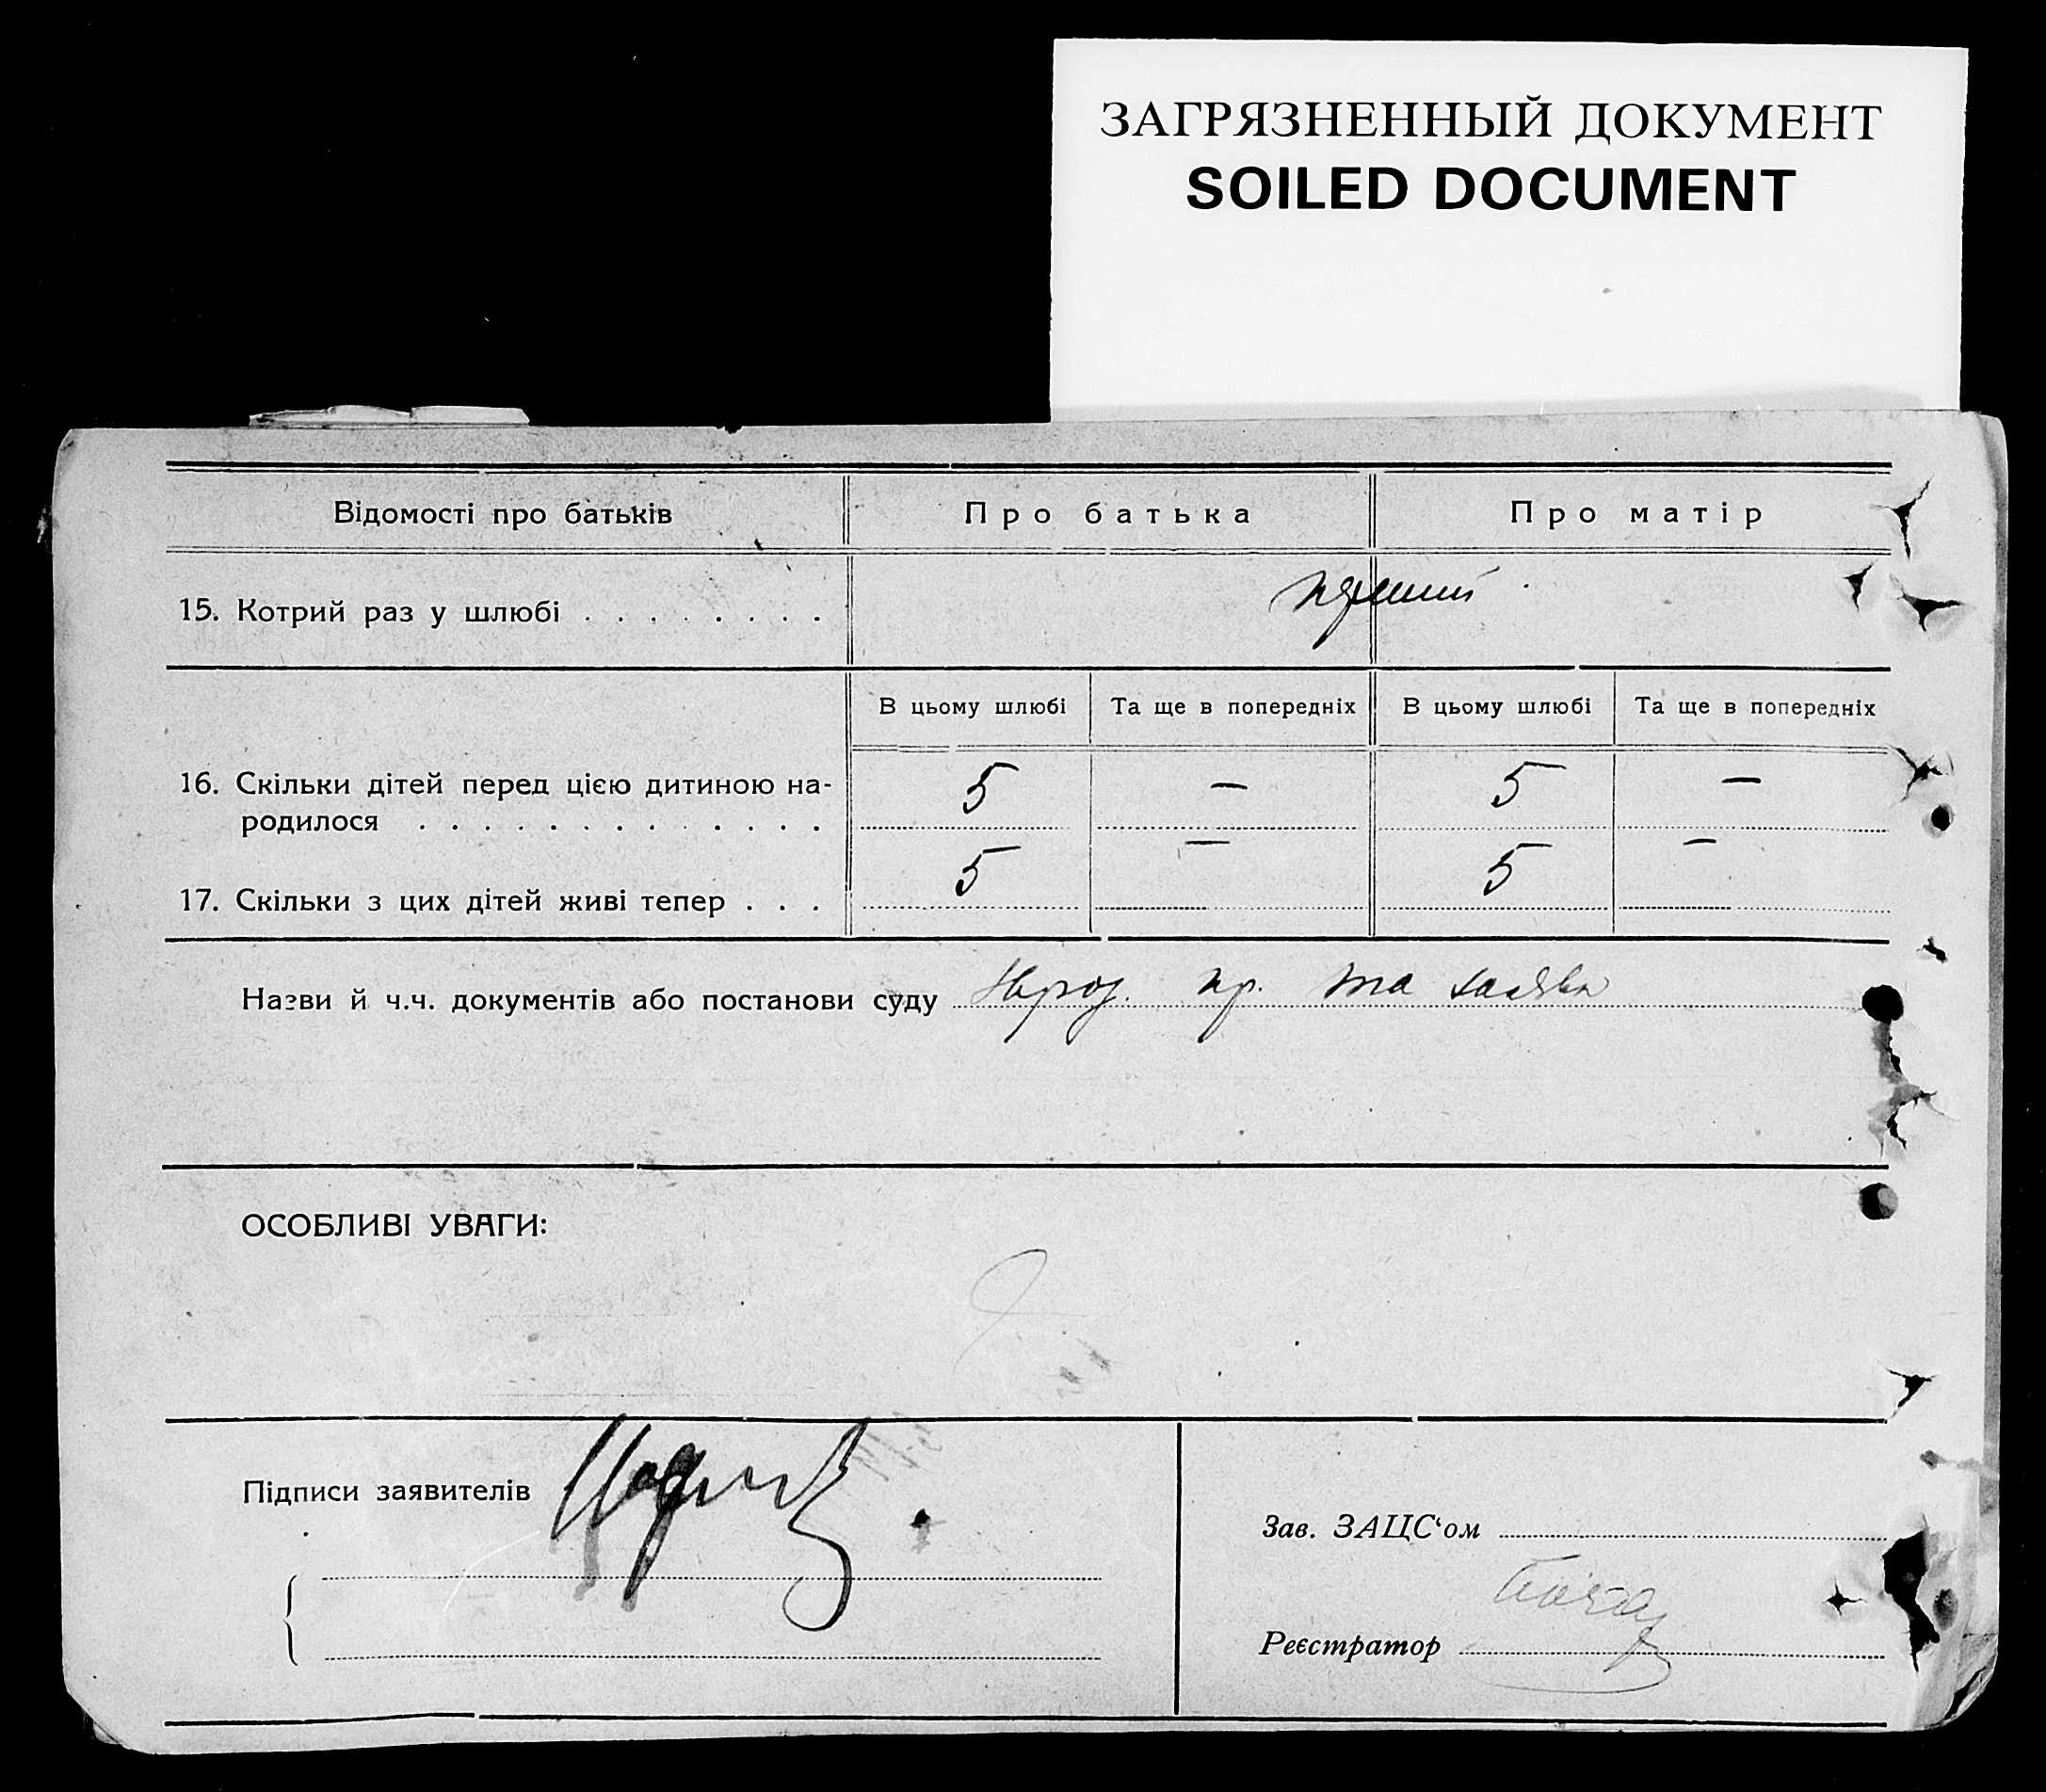 ЗАГРЯЗНЕННЫЙ ДОКУМЕНТ
SOILED DOCUMENT
Відомості про батьків Про батька Про матір
15. Котрий раз у шлюбі . . . . . . . .
В цьому шлюбі Та ще в попередніх В цьому шлюбі Та ще в попередніх
16. Скільки дітей перед цією дитиною на- 5 — 5 —
родилося . . . . . . . . . . . . .
17. Скільки з цих дітей живі тепер . . . 5 — 5 —
Назви й ч.ч. документів або постанови суду пр. та заява
ОСОБЛИВІ УВАГИ:
Підписи заявителів
Зав. ЗАЦС‘ом
Реєстратор